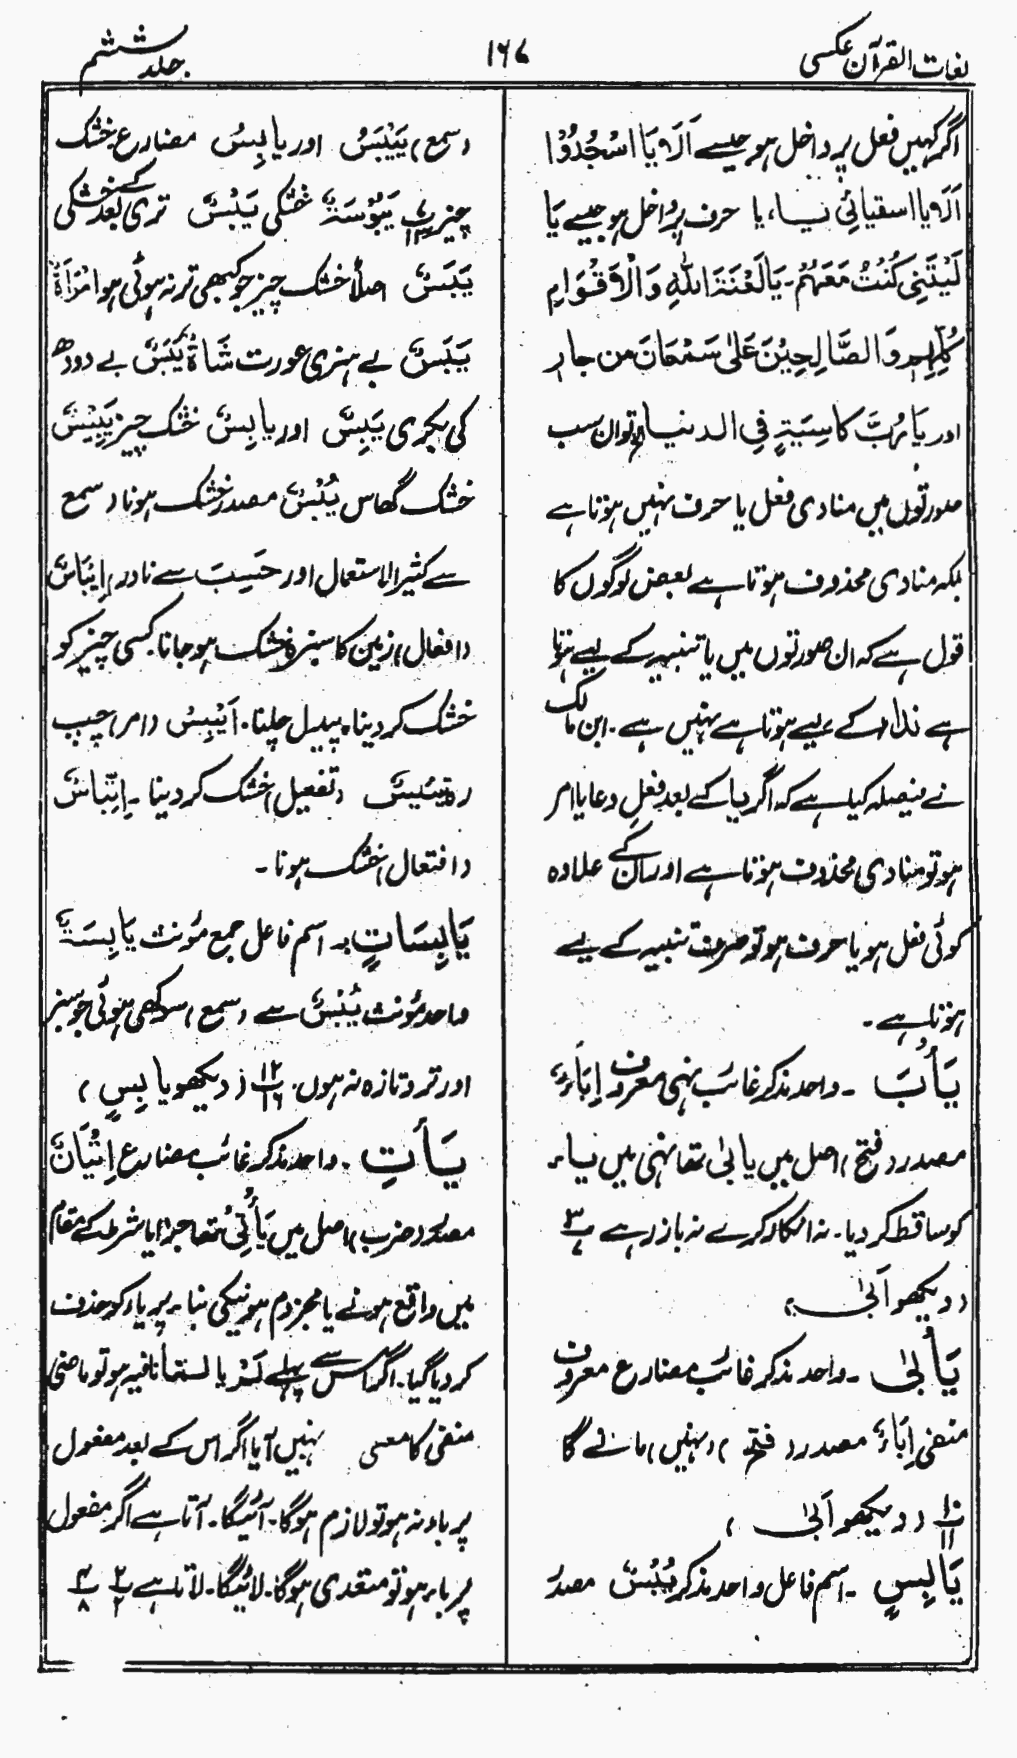 لغات القرآن عکسی
۱۶۷
جلد ششم
اگر کہیں فعل پر داخل ہو جیسے اَلَا یَا اسْجُدُوْا
اَلَا یا اسقیانِیْ یا حرف پر داخل ہو جیسے یَا
لَیْتَنِی کُنْتُ مَعَهُمْ۔ یَا لَعْنَةَ اللّٰہِ وَالْاَقْوَامِ
کُلِّهِم وَالصَّالِحِیْنَ عَلٰی سَمْعَانَ من جار
اور یَا رُبَّ کَاسِیَةٍ فِی الدنیا تو ان سب
صورتوں میں منادی فعل یا حرف نہیں ہوتا ہے
بلکہ منادی محذوف ہوتا ہے بعض لوگوں کا
قول ہے کہ ان صورتوں میں یا تنبیہ کے لیے ہوتا
ہے نداء کے لیے ہوتا ہے نہیں ہے۔ ابن مالک
نے فیصلہ کیا ہے کہ اگر یا کے بعد فعل دعا یا امر
ہو تو منادی محذوف ہوتا ہے اور ان کے علاوہ
کوئی فعل ہو یا حرف ہو تو صرف تنبیہ کے لیے
ہوتا ہے۔
یَأْبَ ۔ واحد مذکر غائب نہی معروف اِبَاءٌ
مصدر (فتح) اصل میں یابیٰ تھا نہی میں یاء
کو ساقط کر دیا۔ نہ انکار کرے نہ باز رہے ۳/۷
(دیکھو اَبیٰ)
یَأْبیٰ ۔ واحد مذکر غائب مضارع معروف
منفی اِبَاءٌ مصدر (فتح) (نہیں) مانے گا
۱۰/۱۱ (دیکھو اَبیٰ)
یَابِسٍ ۔ اسم فاعل واحد مذکر یُبْسٌ مصدر
(سمع) یَیْبَسُ اور یابِسُ مضارع خشک
چیز ۷/۱۳ یَبُوْسَةٌ خشکی یَبْسٌ تری کے بعد خشکی
یَبَسٌ اصلاً خشک چیز جو کبھی تر نہ ہوئی ہو امْرَأَةٌ
یَبَسٌ بے ہنری عورت شَاةٌ یَبَسٌ بے دودھ
کی بکری یَبِسٌ اور یابِسٌ خشک چیز یَبِیْسٌ
خشک گھاس یُبْسٌ مصدر خشک ہونا (سمع
سے کثیر الاستعمال اور حَسِبَ سے نادر) اِیْبَاسٌ
(افعال) زمین کا سبزہ خشک ہو جانا۔ کسی چیز کو
خشک کر دینا، پیدل چلنا۔ اَیْبِسْ (امر) چپ
رہ تَیْبِیْسٌ (تفعیل) خشک کر دینا ۔ اِتِّبَاسٌ
(افتعال) خشک ہونا ۔
یَابِسَاتٍ ۔ اسم فاعل جمع مؤنث یَابِسَةٌ
واحد مؤنث یُبْسٌ سے (سمع) سوکھی ہوئی جو سبز
اور تر و تازہ نہ ہوں۔ ۱۲/۱۶ (دیکھو یابِسٍ)
یَأْتِ ۔ واحد مذکر غائب مضارع اِتْیَانٌ
مصدر (ضرب) اصل میں یَأْتِیُ تھا جزا یا شرط کے مقام
میں واقع ہونے یا مجزوم ہونیکی بنا پر یاء کو حذف
کر دیا گیا۔ اگر اس سے پہلے لَمْ یا لمّا نافیہ ہو تو ماضی
منفی کا معنی نہیں آیا اگر اس کے بعد مفعول
پر باء نہ ہو تو لازم ہوگا۔ آئیگا۔ آتا ہے اگر مفعول
پر باء ہو تو متعدی ہوگا۔ لائیگا۔ لاتا ہے ۲/۲ ۴/۸